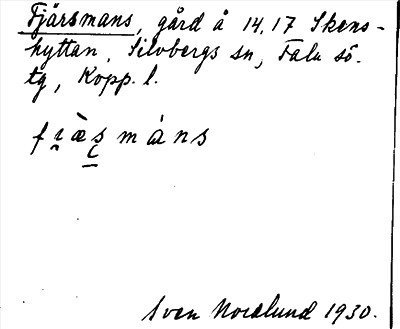 Fjärsmans, gård å 14, 17 Skens-
hyttan, Silvbergs sn, Falu sö.
tg, Kopp. l.
fi̯æ̀s̨màns
Sven Nordlund 1930.